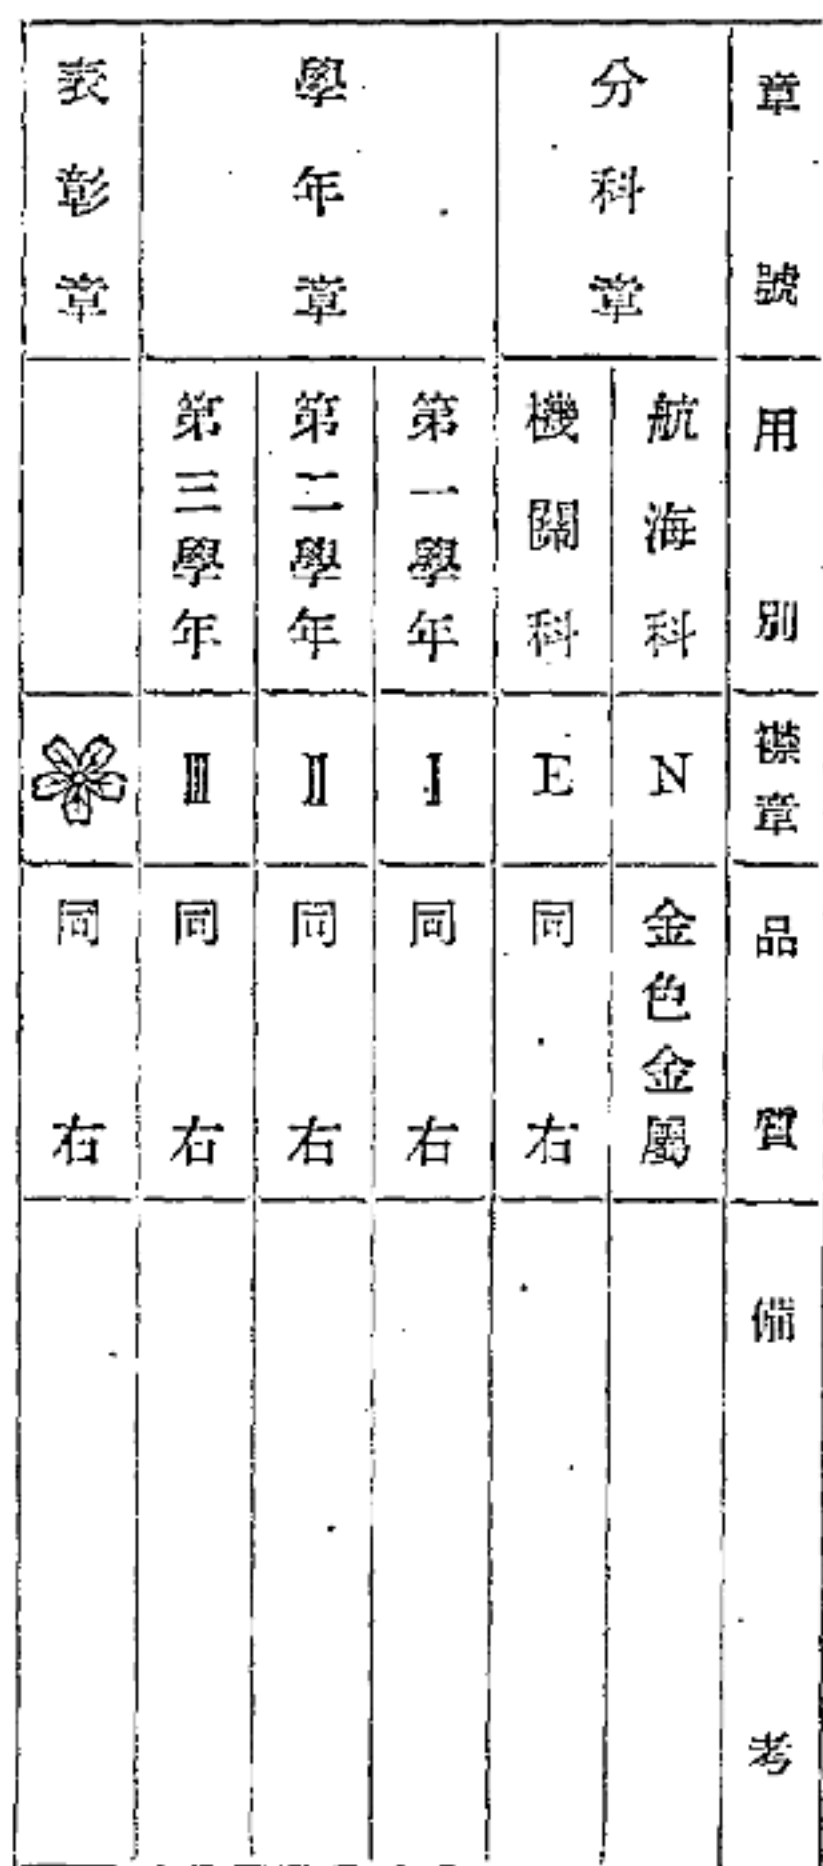 章號
用別
襟章
品質
備考
分科章
航海科
N
金色金屬
機關科
E
同右
學年章
第一學年
I
同右
第二學年
II
同右
第三學年
III
同右
表彰章
同右